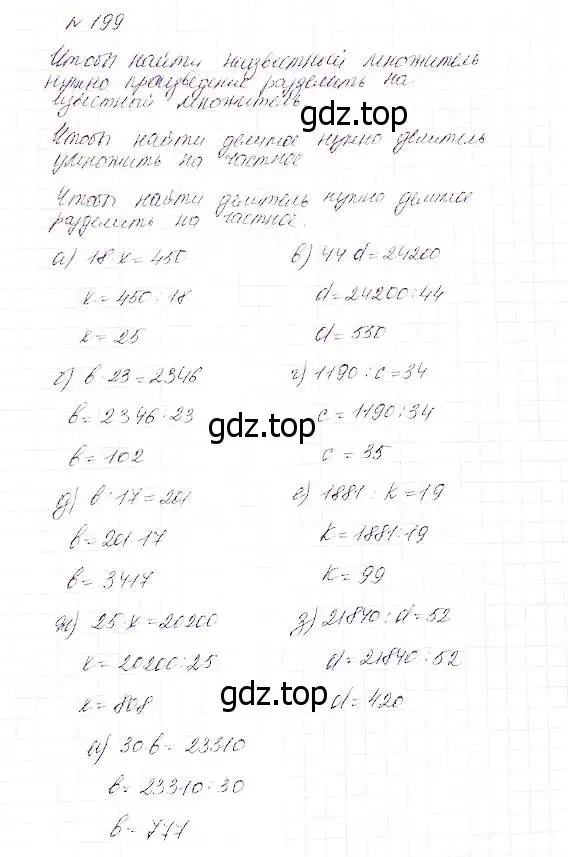 № 199
Чтобы найти неизвестный множитель
нужно произведение разделить на
известный множитель
Чтобы найти делимое нужно делитель
умножить на частное
Чтобы найти делитель нужно делимое
разделить на частное.
а) 18·x = 450
x = 450 : 18
x = 25
в) 44 d = 24200
d = 24200 : 44
d = 550
б) b·23 = 2346
b = 2346 : 23
b = 102
г) 1190 : c = 34
c = 1190 : 34
c = 35
д) b : 17 = 201
b = 201·17
b = 3417
е) 1881 : k = 19
k = 1881 : 19
k = 99
ж) 25·x = 20200
x = 20200 : 25
x = 808
з) 21840 : d = 52
d = 21840 : 52
d = 420
и) 30 b = 23310
b = 23310 : 30
b = 777
gdz.top
gdz.top
gdz.top
gdz.top